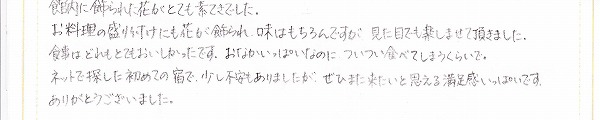 館内に飾られた花がとても素てきでした。
お料理の盛り付けにも花が飾られ、味はもちろんですが 見た目でも楽しませて頂きました。
食事はどれもとてもおいしかったです。おなかいっぱいなのに ついつい食べてしまうくらいで。
ネットで探した初めての宿で、少し不安もありましたが、ぜひまた来たいと思える満足感いっぱいです。
ありがとうございました。